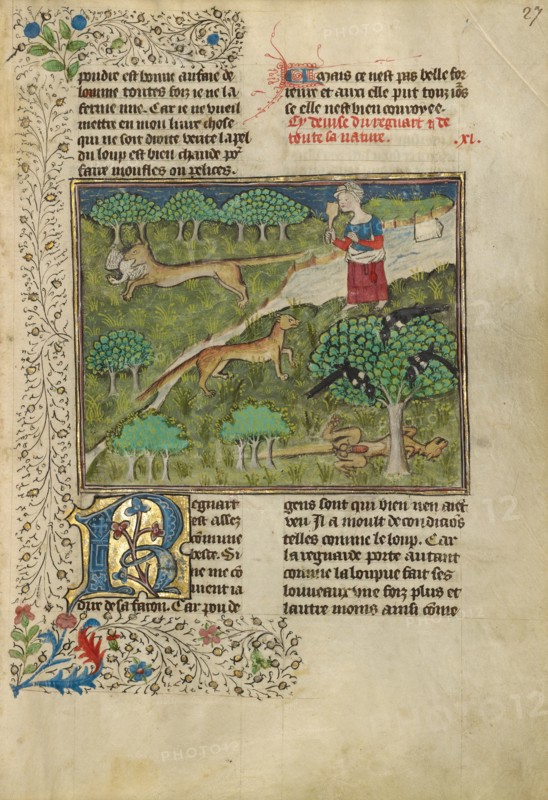 27
poudre est bonne au fame de
loume toutes foiz ie ne la
ferme mie. Car ie ne vueil
mettre en mon liure chose
qui ne soit droite verite la pel
du loup est bien chaude por
faire moufles ou pelices.
Mais ce nest pas belle for
reure et aussi elle put touziours
se elle nest bien conroyee.
Cy deuise du regnart et de
toute sa nature. .xi.
Regnart
est assez
commune
beste. Si
ne me co
uient ia
dire de sa facon. Car pou de
gens sont qui bien nen aiet
veu Il a moult de condicios
telles comme le loup. Car
la regnarde porte autant
comme la louue fait ses
louueaux vne foiz plus et
lautre moins ainsi come
PHOTO12